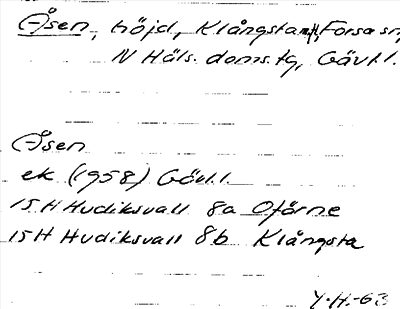 Åsen, höjd, Klångsta Forsa sn,
N Häls. doms.tg, Gävl.l.
Åsen
ek (1958) Gävl.l.
15 H Hudiksvall 8a Ofärne
15 H Hudiksvall 8b Klångsta
Y.H.-63